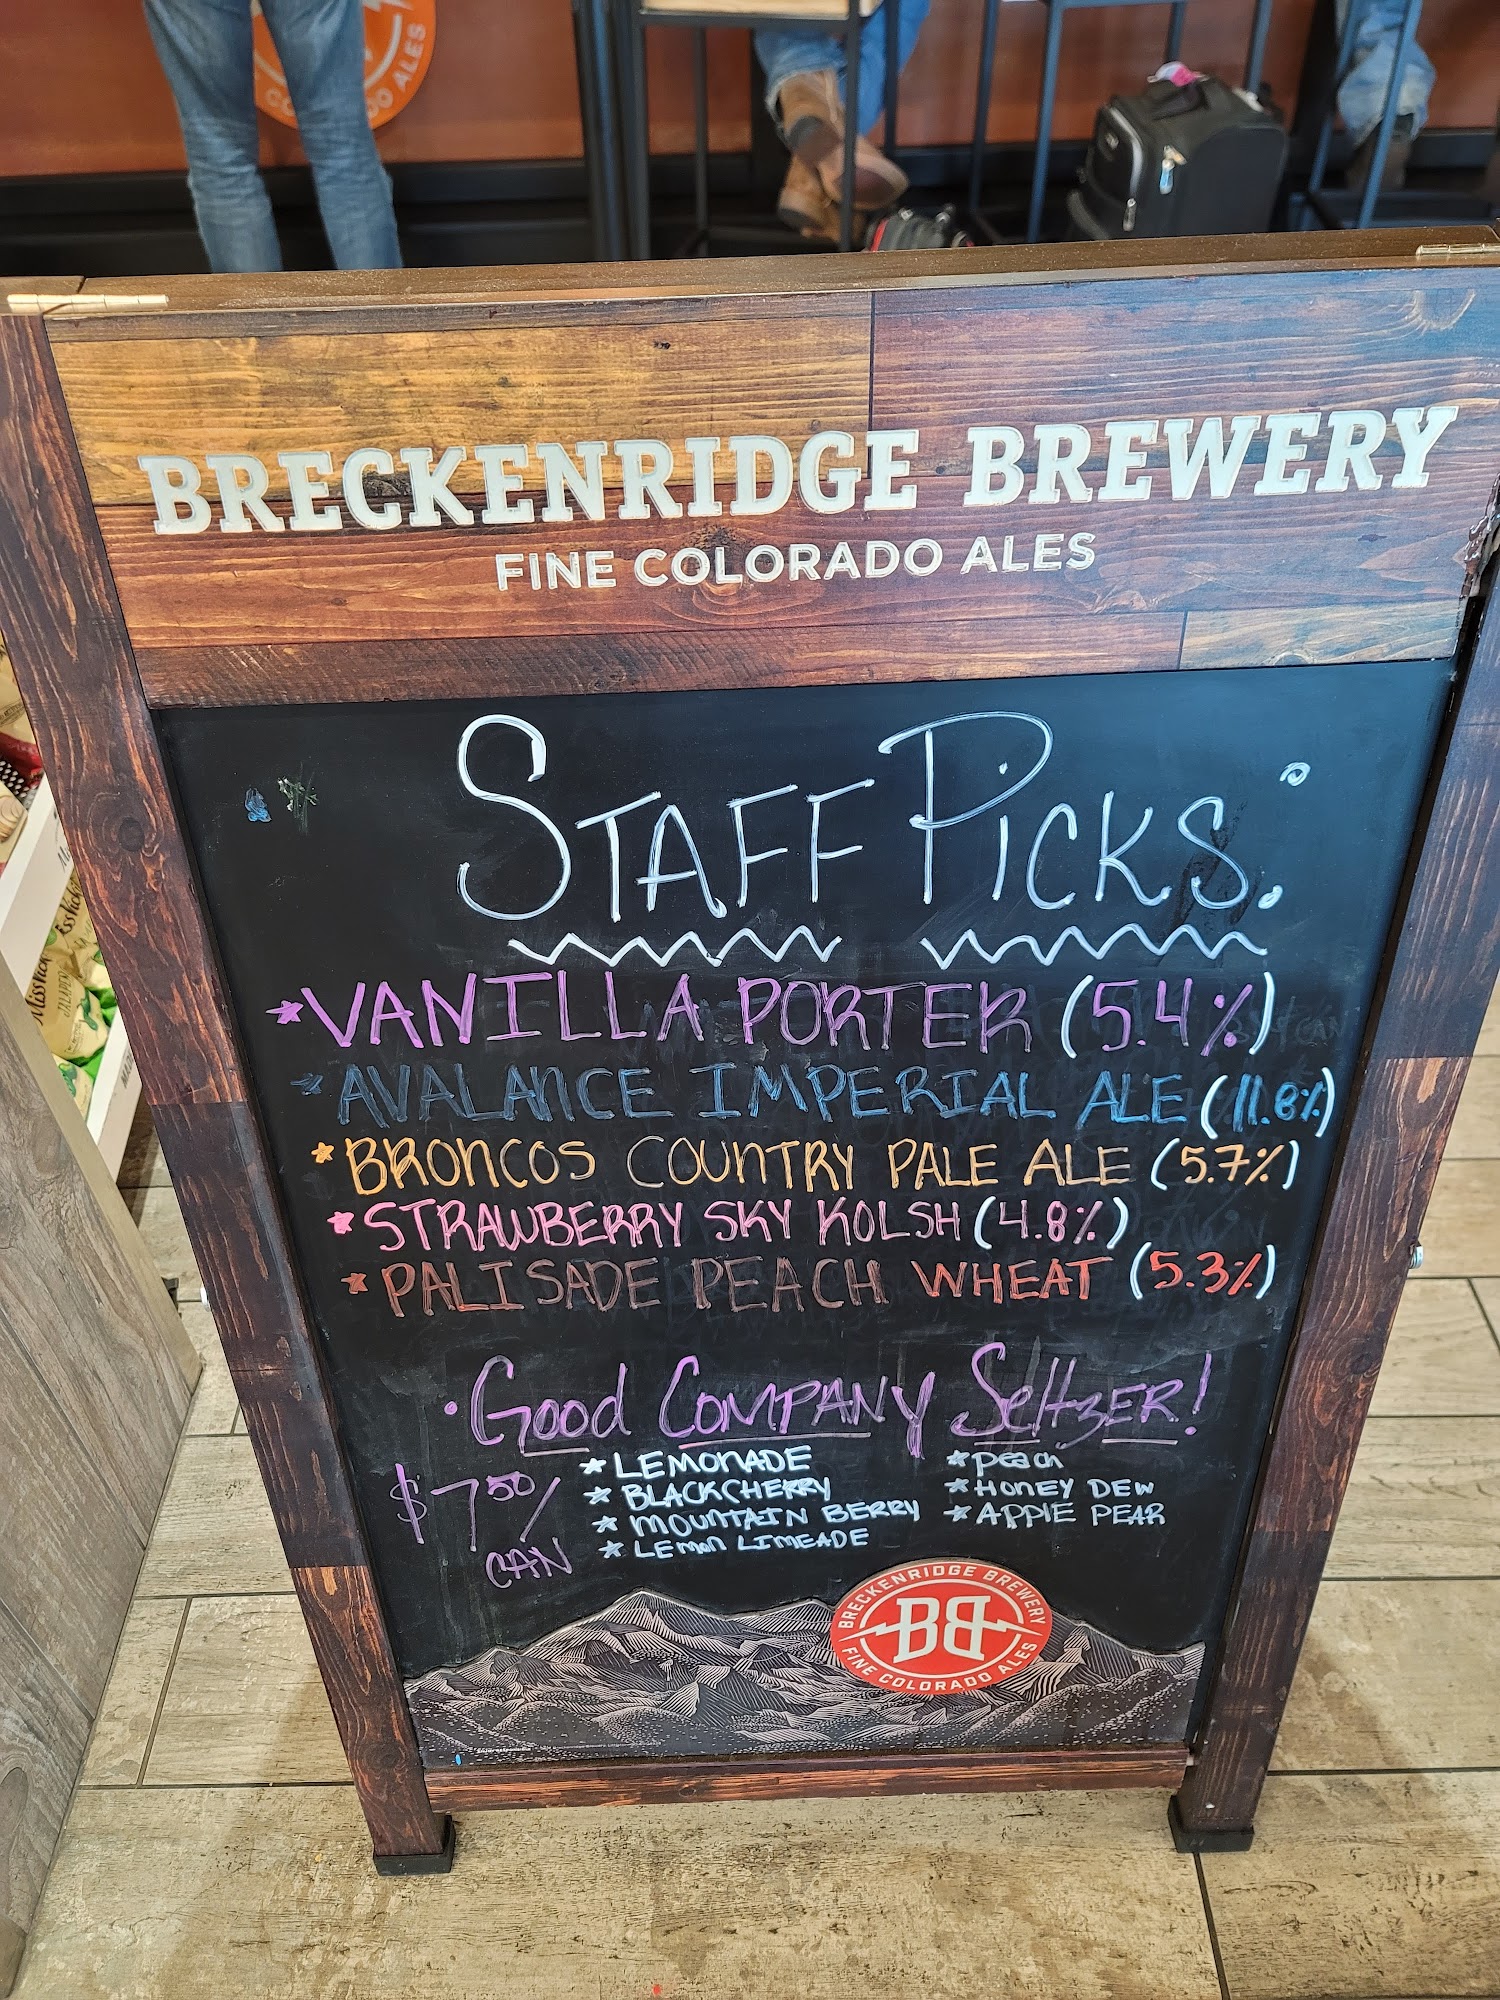 COLORADO ALES
BRECKENRIDGE BREWERY
FINE COLORADO ALES
STAFF PICKS:
*VANILLA PORTER (5.4%)
*AVALANCE IMPERIAL ALE (11.8%)
*BRONCOS COUNTRY PALE ALE (5.7%)
*STRAWBERRY SKY KOLSH (4.8%)
*PALISADE PEACH WHEAT (5.3%)
• Good COMPANY SeltzER!
$7.50/
CAN
* LEMONADE
* BLACKCHERRY
* MOUNTAIN BERRY
* LEMON LIMEADE
* peach
* HONEY DEW
* APPlE PEAR
BRECKENRIDGE BREWERY
BB
FINE COLORADO ALES